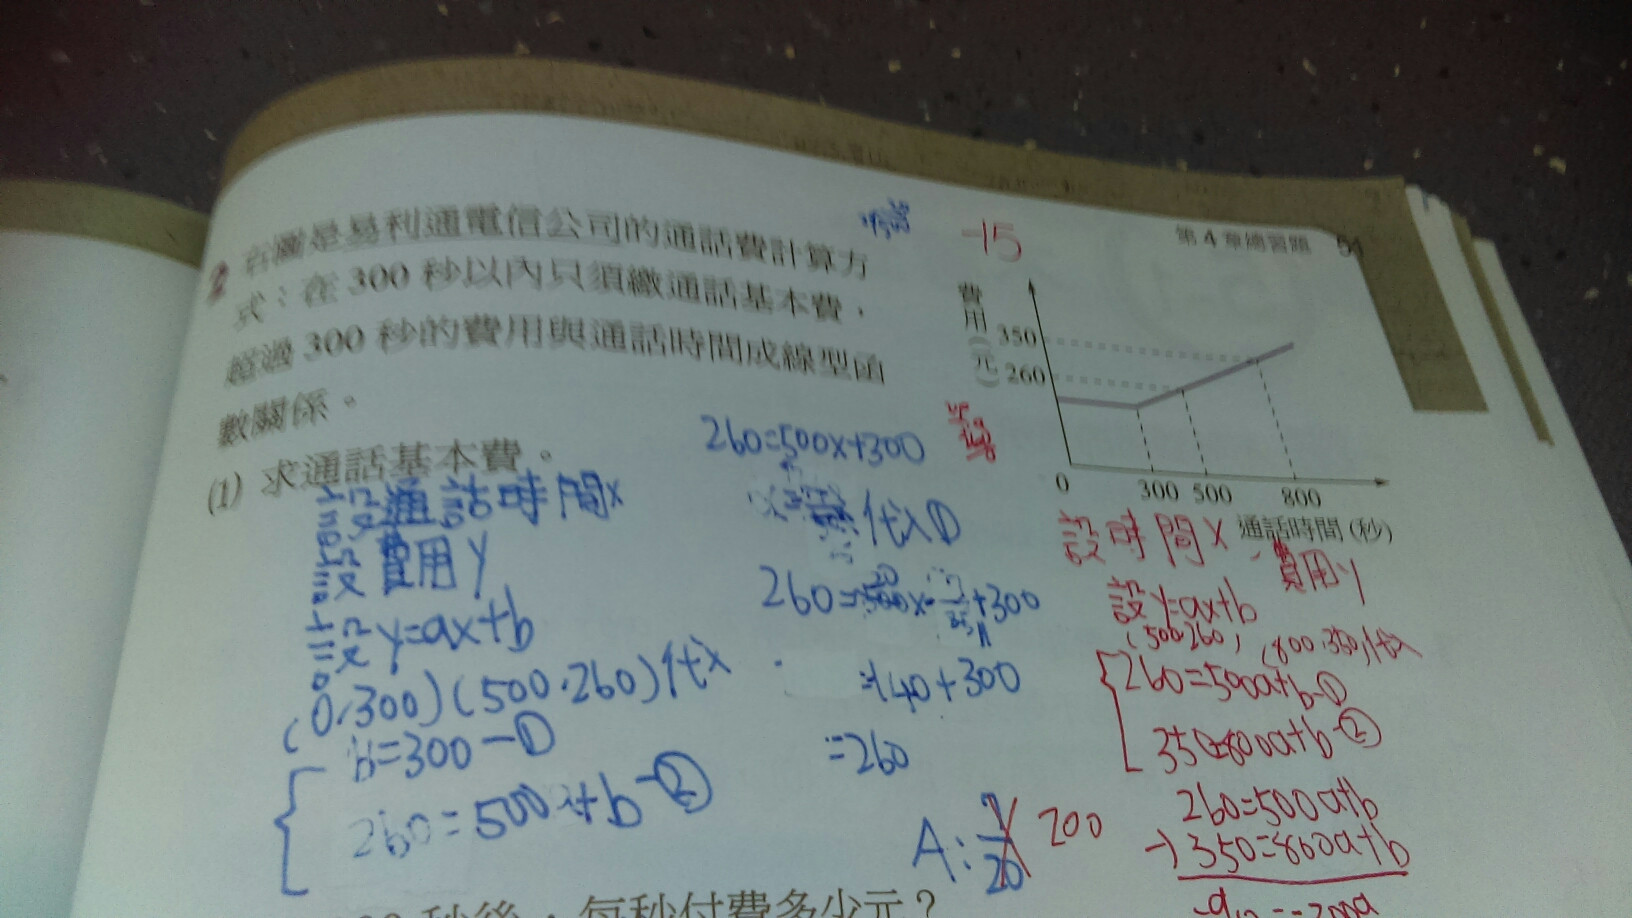 第4章總習題 51
2 右圖是易利通電信公司的通話費計算方
式：在 300 秒以內只須繳通話基本費，
超過 300 秒的費用與通話時間成線型函
數關係。
(1) 求通話基本費。
設通話時間x
設費用y
設y=ax+b
(0,300)(500,260)代入
b=300-①
260=500 +b-②
260=500x+300
代入①
+300
=140+300
=260
A: 7/20 200
-15
費用(元)
350
260
0 300 500 800
通話時間(秒)
設時間x、費用y
設y=ax+b
(500,260) (800,350)代入
260=500a+b-①
350=800a+b-②
260=500a+b
-) 350=800a+b
秒後，每秒付費多少元？